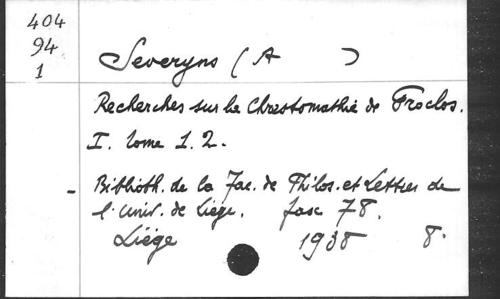 404
94
1
Severyns (A )
Recherches sur la Chrestomathie de Proclos.
I. tome 1. 2.
- Biblioth. de la Fac. de Philos. et Lettres de
l'Univ. de Liège. fasc 78.
Liège 1938 8.